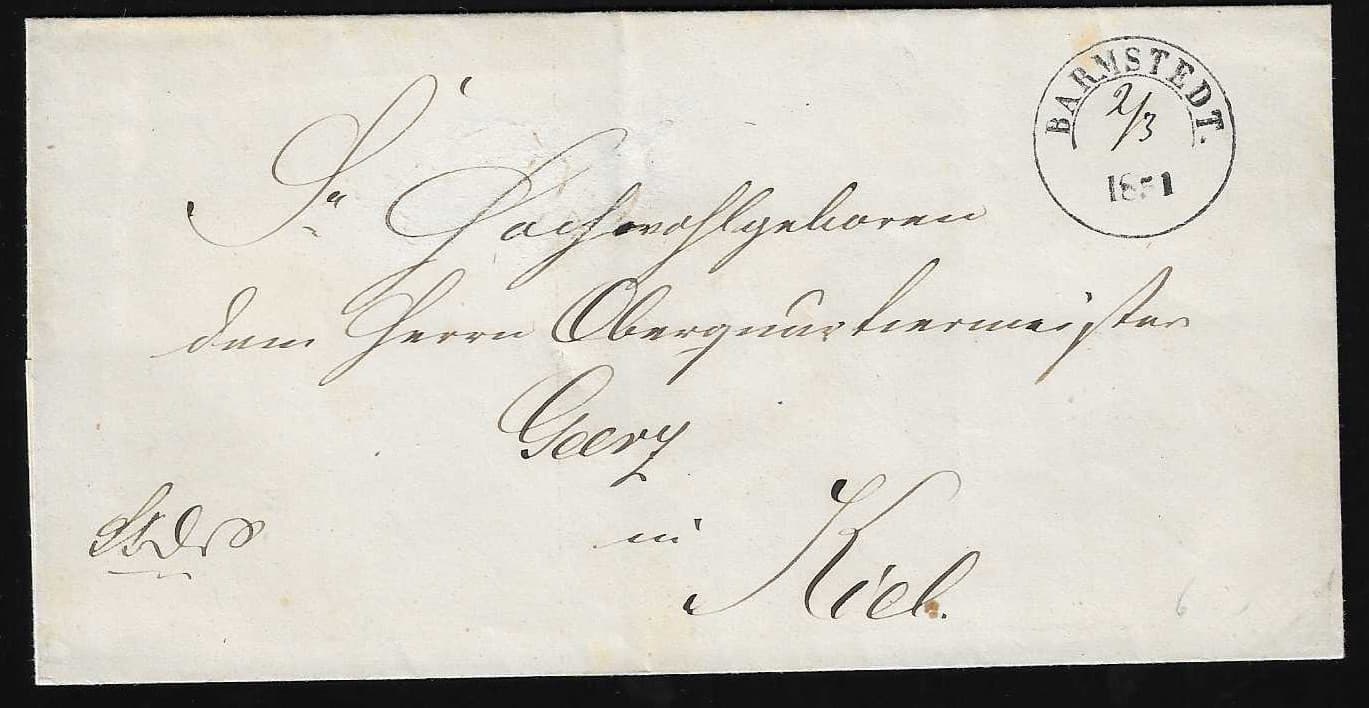 BARMSTEDT.
2/3
1851
Sr Hochwohlgeboren
dem Herrn Oberquartiermeister
Geerz
in Kiel.
6